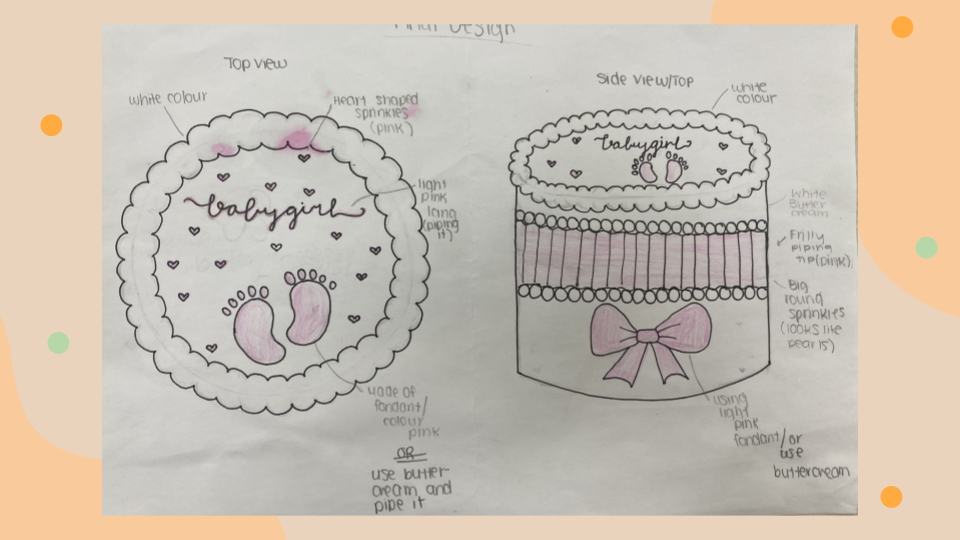 Final Design
Top view
white colour
Heart shaped
sprinkles
(pink)
light
pink
(piping
it)
babygirl
made of
fondant/
colour
pink
OR
use butter
cream and
pipe it
Side view/Top
white
colour
babygirl
White
Butter
cream
Frilly
piping
tip (pink)
Big
round
sprinkles
(looks like
pearls)
using
light
pink
fondant/or
use
buttercream